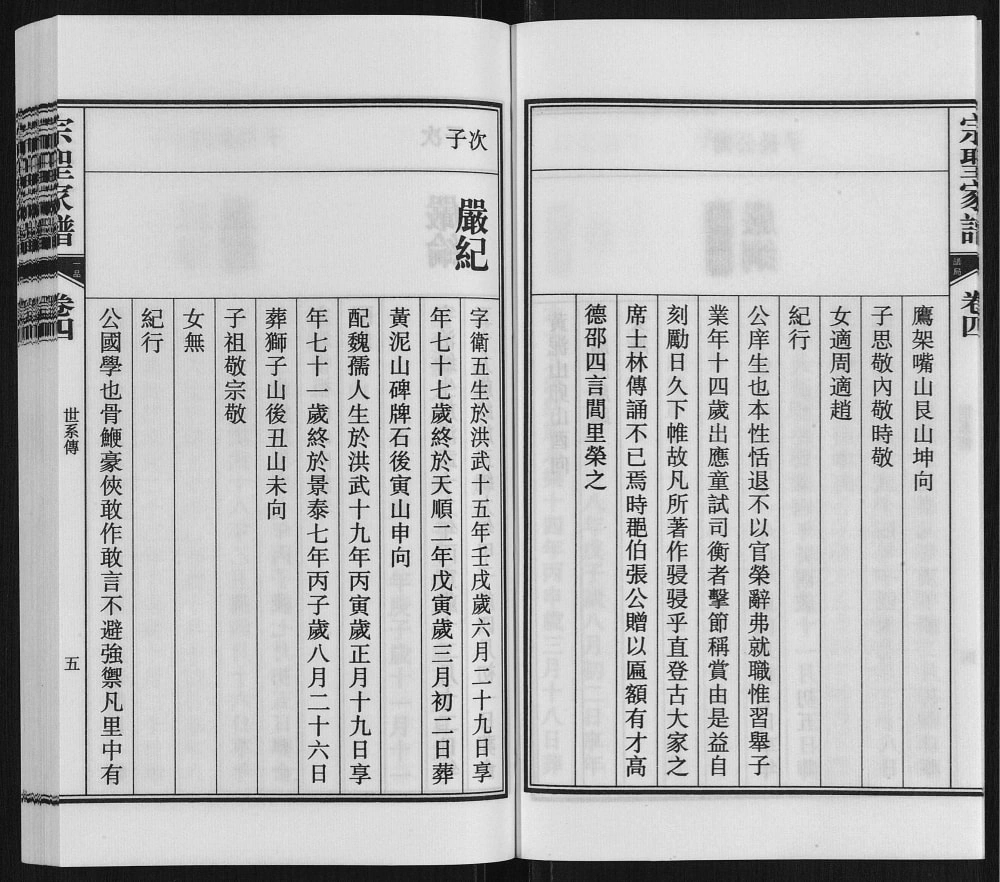 宗聖家譜
卷四
鷹架嘴山艮山坤向
子思敬內敬時敬
女適周適趙
紀行
公庠生也本性恬退不以官榮辭弗就職惟習舉子
業年十四歲出應童試司衡者擊節稱賞由是益自
刻勵日久下帷故凡所著作駸駸乎直登古大家之
席士林傳誦不已焉時郡伯張公贈以匾額有才高
德邵四言閭里榮之
次子
嚴紀
字衛五生於洪武十五年壬戌歲六月二十九日享
年七十七歲終於天順二年戊寅歲三月初二日葬
黃泥山碑牌石後寅山申向
配魏孺人生於洪武十九年丙寅歲正月十九日享
年七十一歲終於景泰七年丙子歲八月二十六日
葬獅子山後丑山未向
子祖敬宗敬
女無
紀行
公國學也骨鯁豪俠敢作敢言不避強禦凡里中有
宗聖家譜
一品
卷四
世系傳
五